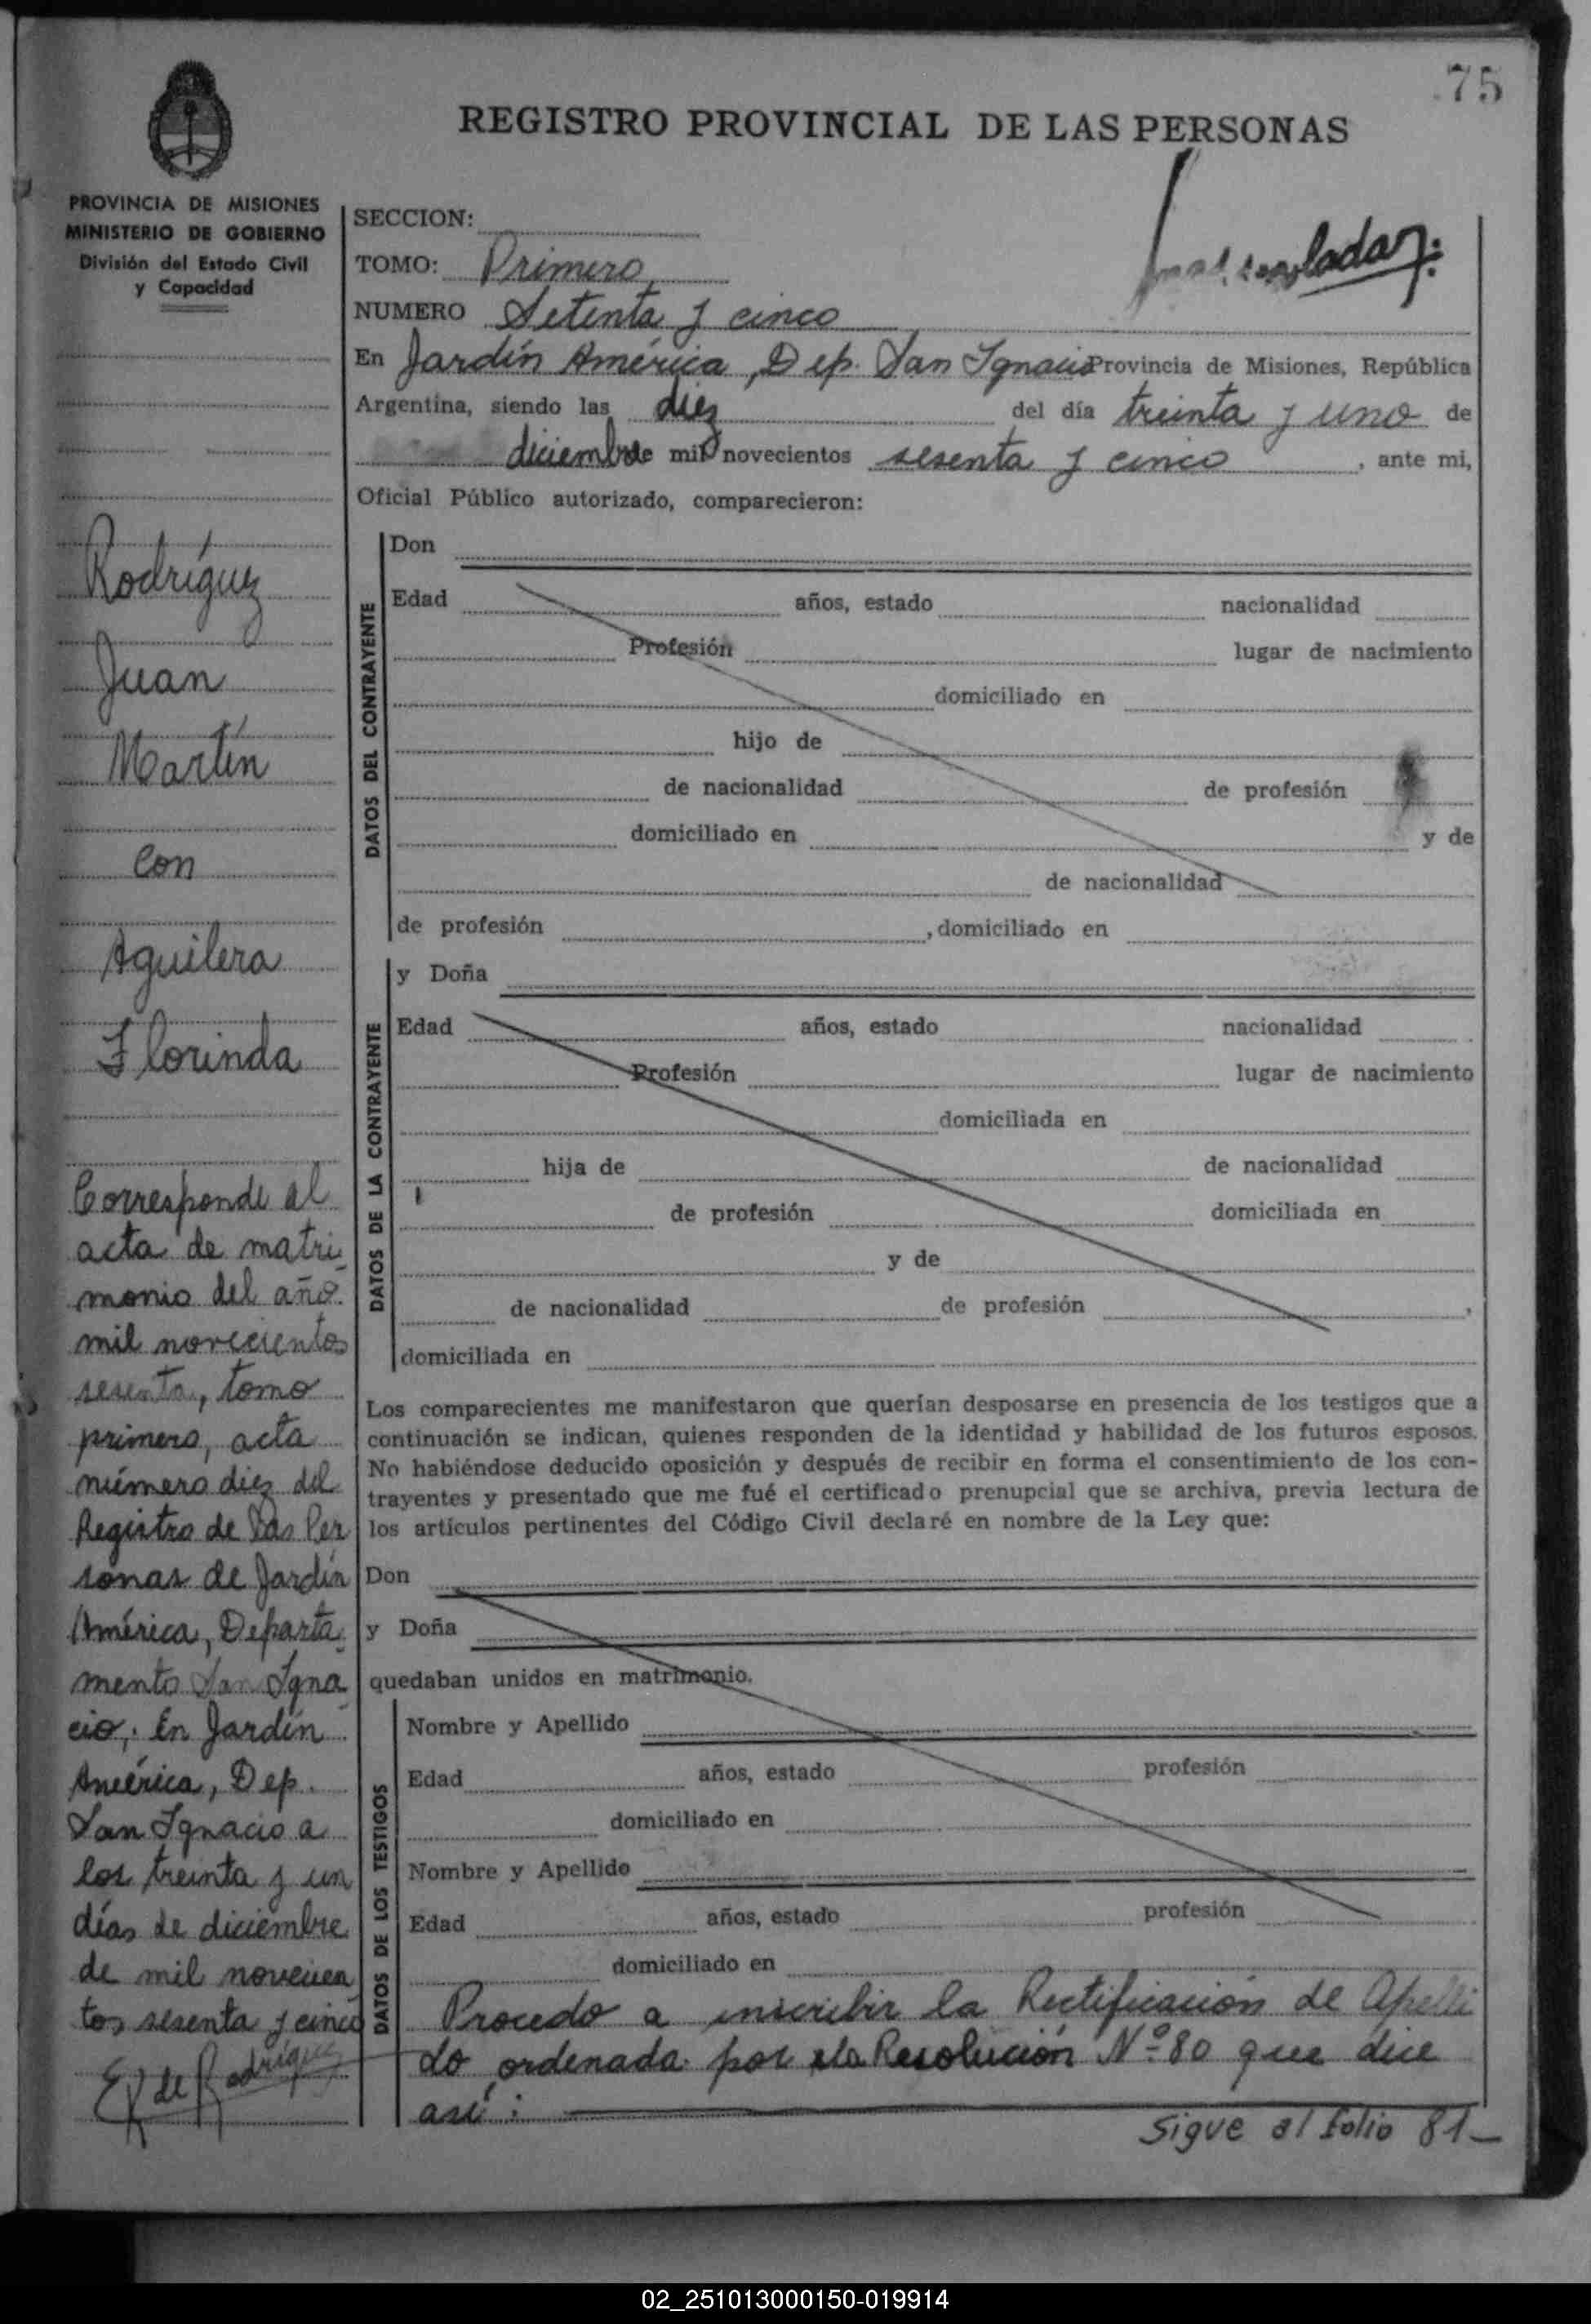 75
REGISTRO PROVINCIAL DE LAS PERSONAS
PROVINCIA DE MISIONES
MINISTERIO DE GOBIERNO
División del Estado Civil
y Capacidad
Rodríguez
Juan
Martín
Con
Aguilera
Florinda
Corresponde al
acta de matri
monio del año
mil novecientos
sesenta, tomo
primero, acta
número diez del
Registro de las Per
sonas de Jardín
América, Departa
mento San Igna
cio; En Jardín
América, Dep.
San Ignacio a
los treinta y un
días de diciembre
de mil novecien
tos sesenta y cinco
de Rodríguez
SECCION:
TOMO: Primero
NUMERO Setenta y cinco
En Jardín América, Dep. San Ignacio Provincia de Misiones, República
Argentina, siendo las diez del día treinta y uno de
diciembre de mil novecientos sesenta y cinco, ante mi,
Oficial Público autorizado, comparecieron:
DATOS DEL CONTRAYENTE
Don
Edad años, estado nacionalidad
Profesión lugar de nacimiento
domiciliado en
hijo de
de nacionalidad de profesión
domiciliado en y de
de nacionalidad
de profesión , domiciliado en
DATOS DE LA CONTRAYENTE
y Doña
Edad años, estado nacionalidad
Profesión lugar de nacimiento
domiciliada en
hija de de nacionalidad
de profesión domiciliada en
y de
de nacionalidad de profesión ,
domiciliada en
Los comparecientes me manifestaron que querían desposarse en presencia de los testigos que a
continuación se indican, quienes responden de la identidad y habilidad de los futuros esposos.
No habiéndose deducido oposición y después de recibir en forma el consentimiento de los con-
trayentes y presentado que me fué el certificado prenupcial que se archiva, previa lectura de
los artículos pertinentes del Código Civil declaré en nombre de la Ley que:
Don
y Doña
quedaban unidos en matrimonio.
DATOS DE LOS TESTIGOS
Nombre y Apellido
Edad años, estado profesión
domiciliado en
Nombre y Apellido
Edad años, estado profesión
domiciliado en
Procedo a inscribir la Rectificación de Apelli
do ordenada por la Resolución Nº 80 que dice
así:
Sigue al folio 81-
02_251013000150-019914